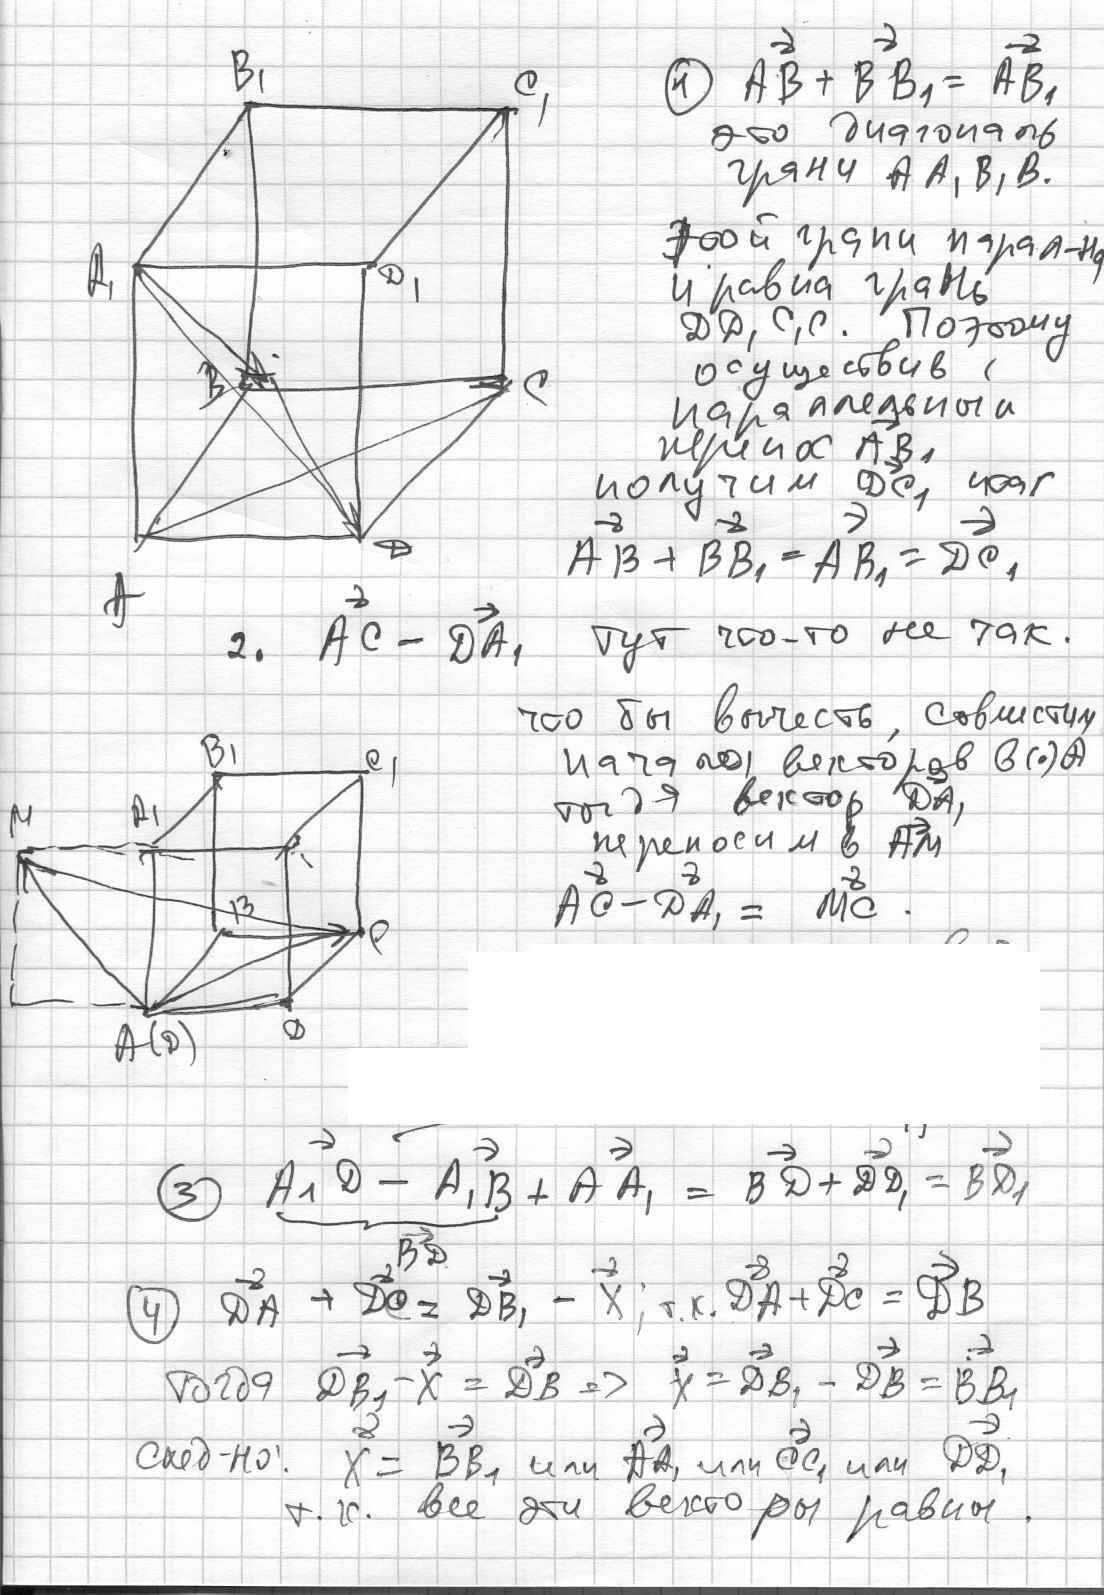 B₁
C₁
A₁
D₁
B
C
A
D
① AB + BB₁ = AB₁
это диагональ
грани AA₁B₁B.
Этой грани парал-на
и равна грань
DD₁C₁C. Поэтому
осуществив
параллельный
перенос AB₁
получим DC₁
AB + BB₁ = AB₁ = DC₁
2. AC − DA₁ тут что-то не так.
что бы вычесть, совместим
начала векторов в (·) A
тогда вектор DA₁
переносим в AM
AC − DA₁ = MC.
B₁
C₁
M
A₁
B
C
A(D)
D
③ A₁D − A₁B + AA₁ = BD + DD₁ = BD₁
BD
④ DA + DC = DB₁ − X; т.к. DA + DC = DB
тогда DB₁ − X = DB => X = DB₁ − DB = BB₁
след-но: X = BB₁ или AA₁ или CC₁ или DD₁
т.к. все эти векторы равны.